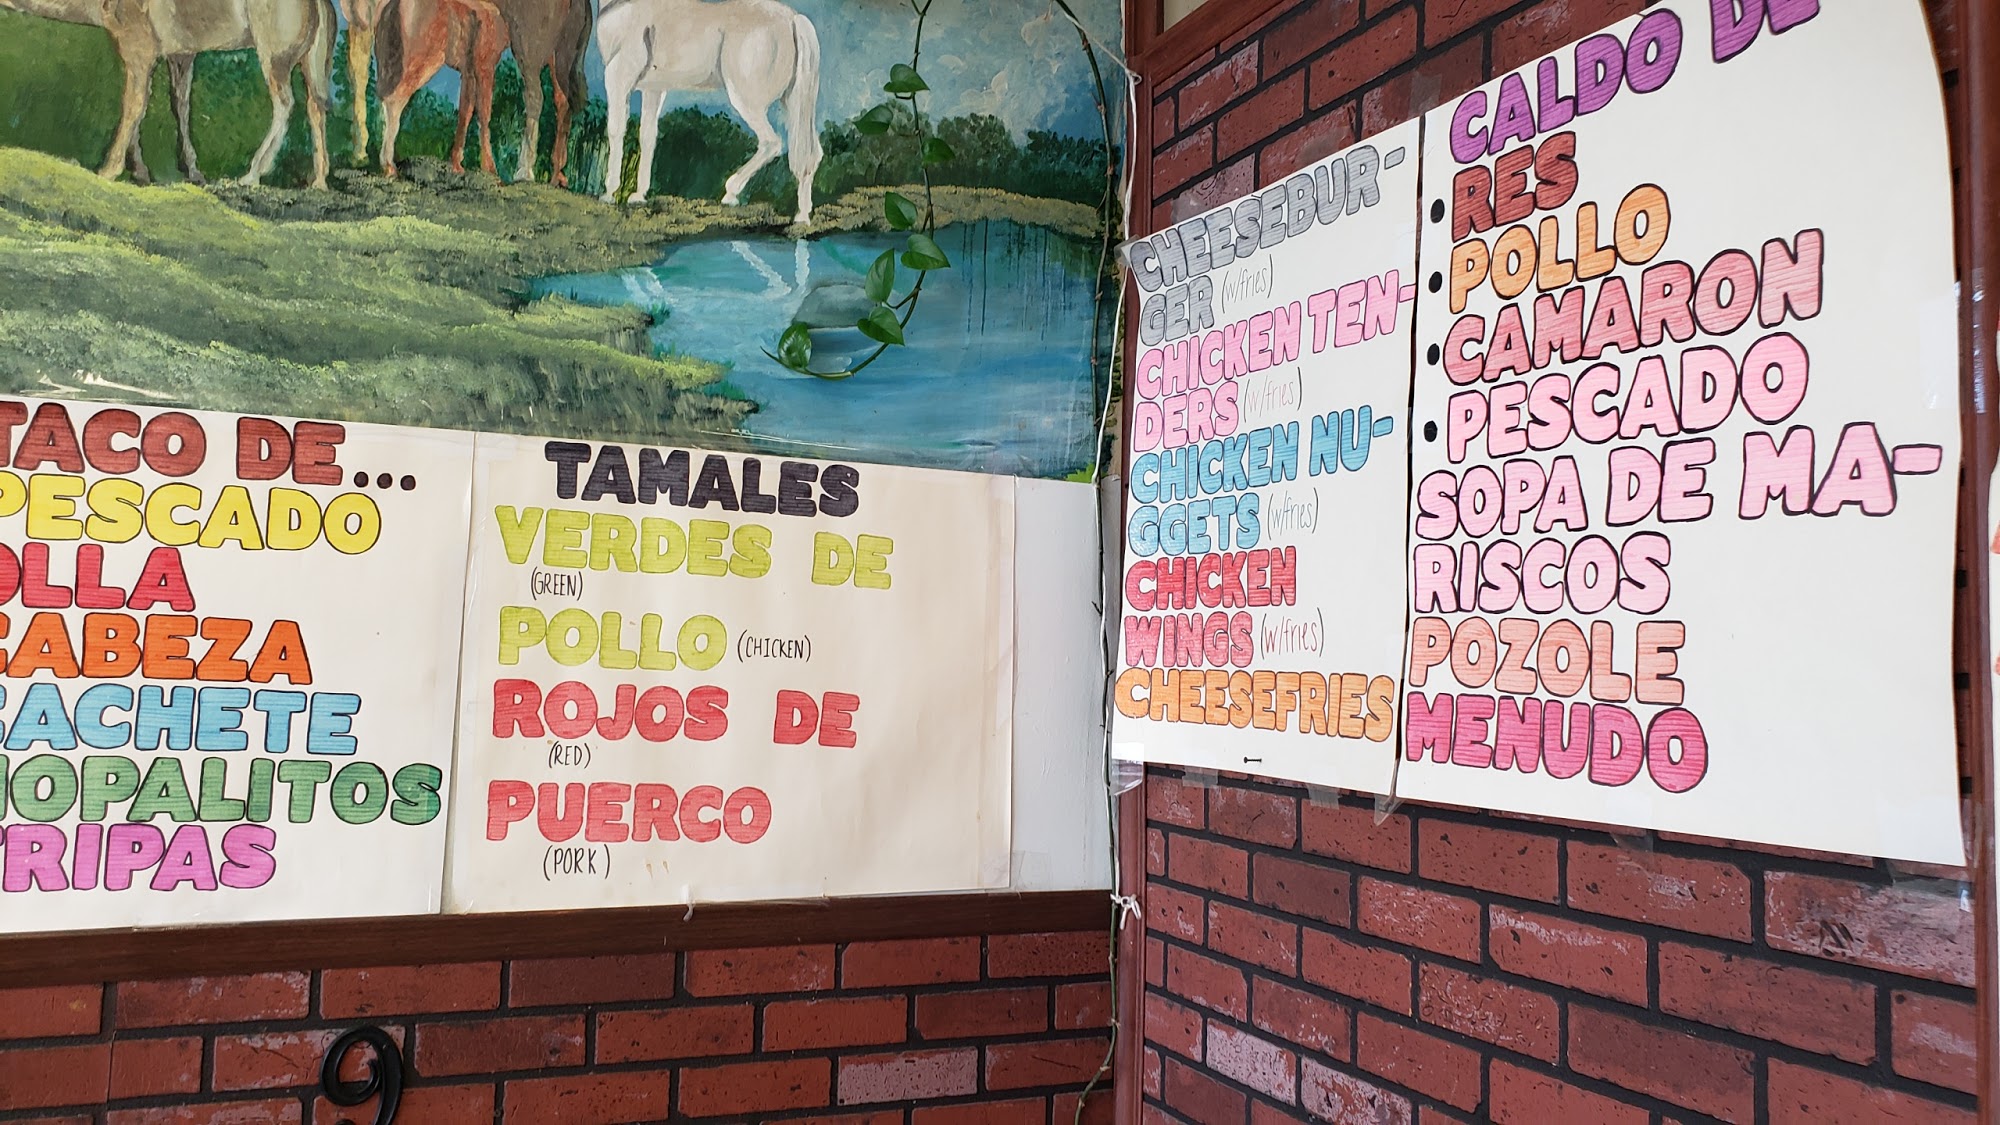 TACO DE...
PESCADO
CABEZA
CACHETE
TRIPAS
TAMALES
VERDES DE
(GREEN)
POLLO (CHICKEN)
ROJOS DE
(RED)
PUERCO
(PORK)
9
CHEESEBUR-
GER (w/fries)
CHICKEN TEN-
DERS (w/fries)
CHICKEN NU-
GGETS (w/fries)
CHICKEN
WINGS (w/fries)
CHEESEFRIES
CALDO DE
• RES
• POLLO
• CAMARON
• PESCADO
SOPA DE MA-
RISCOS
POZOLE
MENUDO